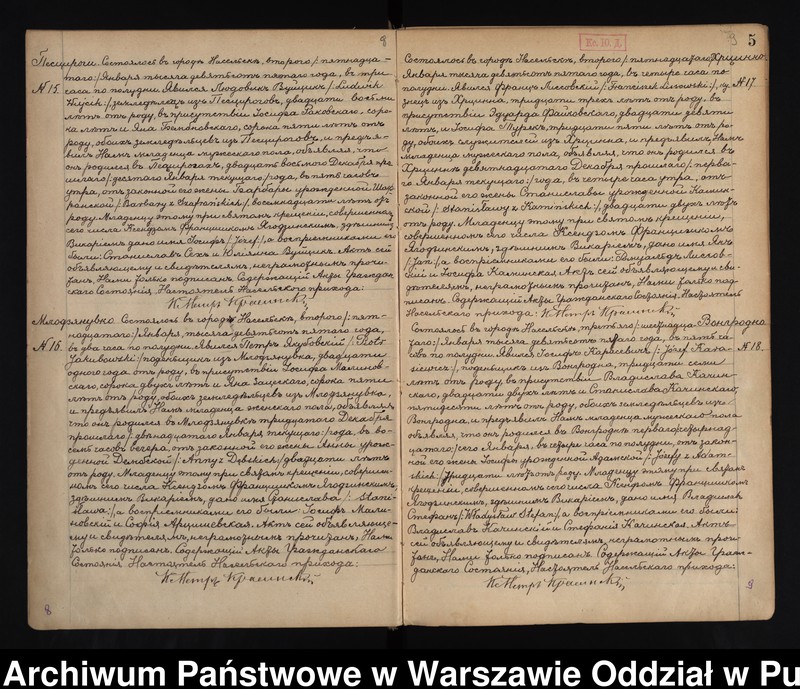 8
Песцероги. Состоялось въ городѣ Насельскѣ, второго /: пятнадца-
того:/ Января тысяча девятьсотъ пятаго года, въ три
№15. часа по полудни. Явился Людовикъ Вуйцикъ /: Ludwik
Wójcik:/ земледѣлецъ изъ , двадцати восьми
лѣтъ отъ роду, въ присутствіи Іосифа Раковскаго, соро-
ка лѣтъ и Яна , сорока пяти лѣтъ отъ
роду, обоихъ земледѣльцевъ изъ , и предъя-
вилъ Намъ младенца мужескаго пола, объявляя, что
онъ родился въ , двадцать восьмого Декабря про-
шлаго /: десятаго Января текущаго:/ года, въ пять часовъ
утра, отъ законной его жены Барбары урожденной Шаф-
ранской /: Barbary z Szafrańskich:/, восемнадцати лѣтъ отъ
роду. Младенцу этому при святомъ крещеніи, совершенномъ
сего числа Ксендзомъ Францишкомъ Ягодзинскимъ, здѣшнимъ
Викаріемъ, дано имя Іосифъ /: Józef:/, а воспріемниками его
были: Станиславъ и Юліянна Вуйцикъ. Актъ сей
объявляющему и свидѣтелямъ, неграмотнымъ прочи-
танъ, Нами только подписанъ. Содержащій Акты Граждан-
скаго Состоянія. Настоятель Насельскаго прихода:
Кс Петръ Красинскій
Млодзяновко Состоялось въ городѣ Насельскѣ, второго /: пят-
надцатого:/ Января, тысяча девятьсотъ пятаго года,
№16. въ два часа по полудни. Явился Петръ Якубовскій /: Piotr
Jakubowski:/ поденьщикъ изъ Млодзяновка, двадцати
одного года отъ роду, въ присутствіи Іосифа Малинов-
скаго, сорока двухъ лѣтъ и Яна , сорока пяти
лѣтъ отъ роду, обоихъ земледѣльцевъ изъ Млодзяновка,
и предъявилъ Намъ младенца женскаго пола, объявляя
что онъ родился въ Млодзяновкѣ тридцатаго Декабря
прошлаго /: двѣнадцатаго Января текущаго:/ года, въ во-
семь часовъ вечера, отъ законной его жены Анны урож-
денной Дембской /: Anny z Dębskich:/ двадцати лѣтъ
отъ роду. Младенцу этому при святомъ крещеніи, совершен-
номъ сего числа Ксендзомъ Францишкомъ Ягодзинскимъ,
здѣшнимъ Викаріемъ, дано имя Станислава /: Stani-
sława:/, а воспріемниками его были: Іосифъ Мали-
новскій и Софія . Актъ сей объявляюще-
му и свидѣтелямъ, неграмотнымъ прочитанъ, Нами
только подписанъ. Содержащій Акты Гражданскаго
Состоянія Настоятель Насельскаго прихода:
Кс Петръ Красинскій
8
5
Состоялось въ городѣ Насельскѣ, второго /: пятнадцатаго:/ Хрцинно.
Января тысяча девятьсотъ пятаго года, въ четыре часа по-
полудни. Явился Францъ Лисовскій /: Franciszek Lisowski:/, ку- №17.
знецъ изъ Хрцинна, тридцати трехъ лѣтъ отъ роду, въ
присутствіи Эдуарда , двадцати девяти
лѣтъ, и Іосифа , тридцати пяти лѣтъ отъ ро-
ду, обоихъ служителей изъ Хрцинна, и предъявилъ Намъ
младенца мужескаго пола, объявляя, что онъ родился въ
Хрциннѣ девятнадцатаго Декабря прошлаго /: перва-
го Января текущаго:/ года, въ четыре часа утра, отъ
законной его жены Станиславы урожденной Камин-
ской /: Stanisławy z Kamińskich:/, двадцати двухъ лѣтъ
отъ роду. Младенцу этому при святомъ крещеніи,
совершенномъ сего числа Ксендзомъ Францишкомъ
Ягодзинскимъ, здѣшнимъ Викаріемъ, дано имя Янъ
/: Jan:/, а воспріемниками его были: Ромуальдъ Лисов-
скій и Іосифа Каминская. Актъ сей объявляющему и сви-
дѣтелямъ, неграмотнымъ прочитанъ, Нами только под-
писанъ. Содержащій Акты Гражданскаго Состоянія, Настоятель
Насельскаго прихода: Кс Петръ Красинскій
Состоялось въ городѣ Насельскѣ, третьяго /: шестнадца-
таго:/ Января, тысяча девятьсотъ пятаго года, въ пять ча-
совъ по полудни. Явился Іосифъ Карасевичъ /: Józef Kara- №18.
siewicz:/, поденщикъ изъ , тридцати семи
лѣтъ отъ роду, въ присутствіи Владислава Качин-
скаго, двадцати двухъ лѣтъ и Станислава Качинскаго,
пятидесяти лѣтъ отъ роду, обоихъ земледѣльцевъ изъ
, и предъявилъ Намъ младенца мужескаго пола
объявляя, что онъ родился въ перваго /: четырнад-
цатаго:/ сего Января, въ четыре часа по полудни, отъ закон-
ной его жены Іосифы урожденной Адамской /: Józefy z Adam-
skich:/ тридцати лѣтъ отъ роду. Младенцу этому при святомъ
крещеніи, совершенномъ сего числа Ксендзомъ Францишкомъ
Ягодзинскимъ, здѣшнимъ Викаріемъ, дано имя Владиславъ
Стефанъ /: Władysław Stefan:/, а воспріемниками его были:
Владиславъ Качинскій и Стефанія Качинская. Актъ
сей объявляющему и свидѣтелямъ, неграмотнымъ прочи-
танъ, Нами только подписанъ. Содержащій Акты Граж-
данскаго Состоянія, Настоятель Насельскаго прихода:
Кс Петръ Красинскій
9
Archiwum Państwowe w Warszawie Oddział w Pu